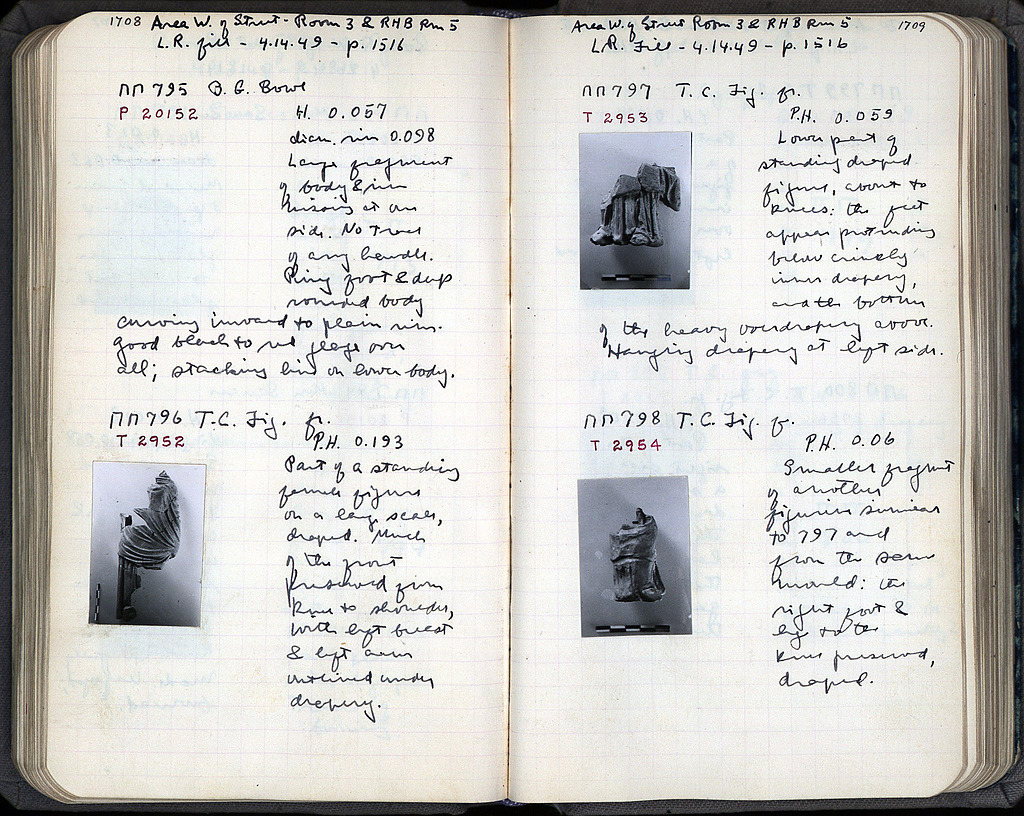 1708 Area W. of Street - Room 3 & RHB Rm 5
L.R. fill - 4.14.49 - p. 1516
ΠΠ 795 B. G. Bowl
P 20152 H. 0.057
diam. rim 0.098
Large fragment
of body & rim
missing at one
side. No trace
of any handle.
Ring foot & deep
rounded body
curving inward to plain rim.
Good black to red glaze over
all; stacking line on lower body.
ΠΠ 796 T.C. Fig. fr.
T 2952 P.H. 0.193
Part of a standing
female figure
on a large scale,
draped. Much
of the front
preserved from
knee to shoulder,
with left breast
& left arm
outlined under
drapery.
Area W. of Street Room 3 & RHB Rm 5 1709
L.R. Fill - 4.14.49 - p. 1516
ΠΠ 797 T.C. Fig. fr.
T 2953 P.H. 0.059
Lower part of
standing draped
figure, about to
knees: the feet
appear protruding
below crinkly
inner drapery,
and the bottom
of the heavy overdrapery above.
Hanging drapery at left side.
ΠΠ 798 T.C. Fig. fr.
T 2954 P.H. 0.06
Smaller fragment
of another
figurine similar
to 797 and
from the same
mould: the
right foot &
leg to the
knee preserved,
draped.